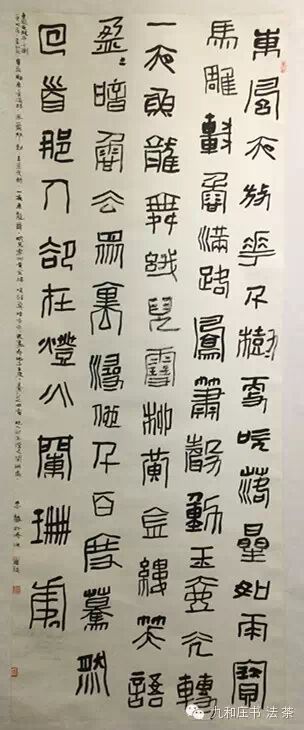 東風夜放花千樹更吹落星如雨寶
馬雕車香滿路鳳簫聲動玉壺光轉
一夜魚龍舞蛾兒雪柳黃金縷笑語
盈〻暗香去眾裏尋他千百度驀然
回首那人卻在燈火闌珊處
九和庄书 法 茶